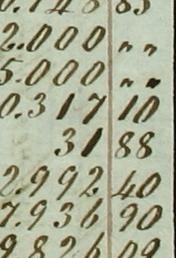 0.148 85
2.000 „ „
5.000 „ „
0.317 10
31 88
2.992 40
7.936 90
9826 09